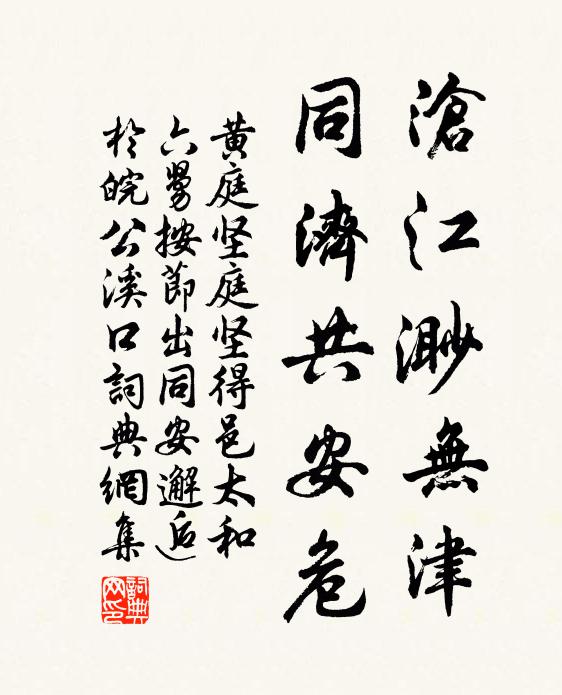 滄江渺無津
同濟共安危
黄庭坚庭坚得邑太和
六舅按節出同安邂逅
於皖公溪口詞典網集
詞典
网印